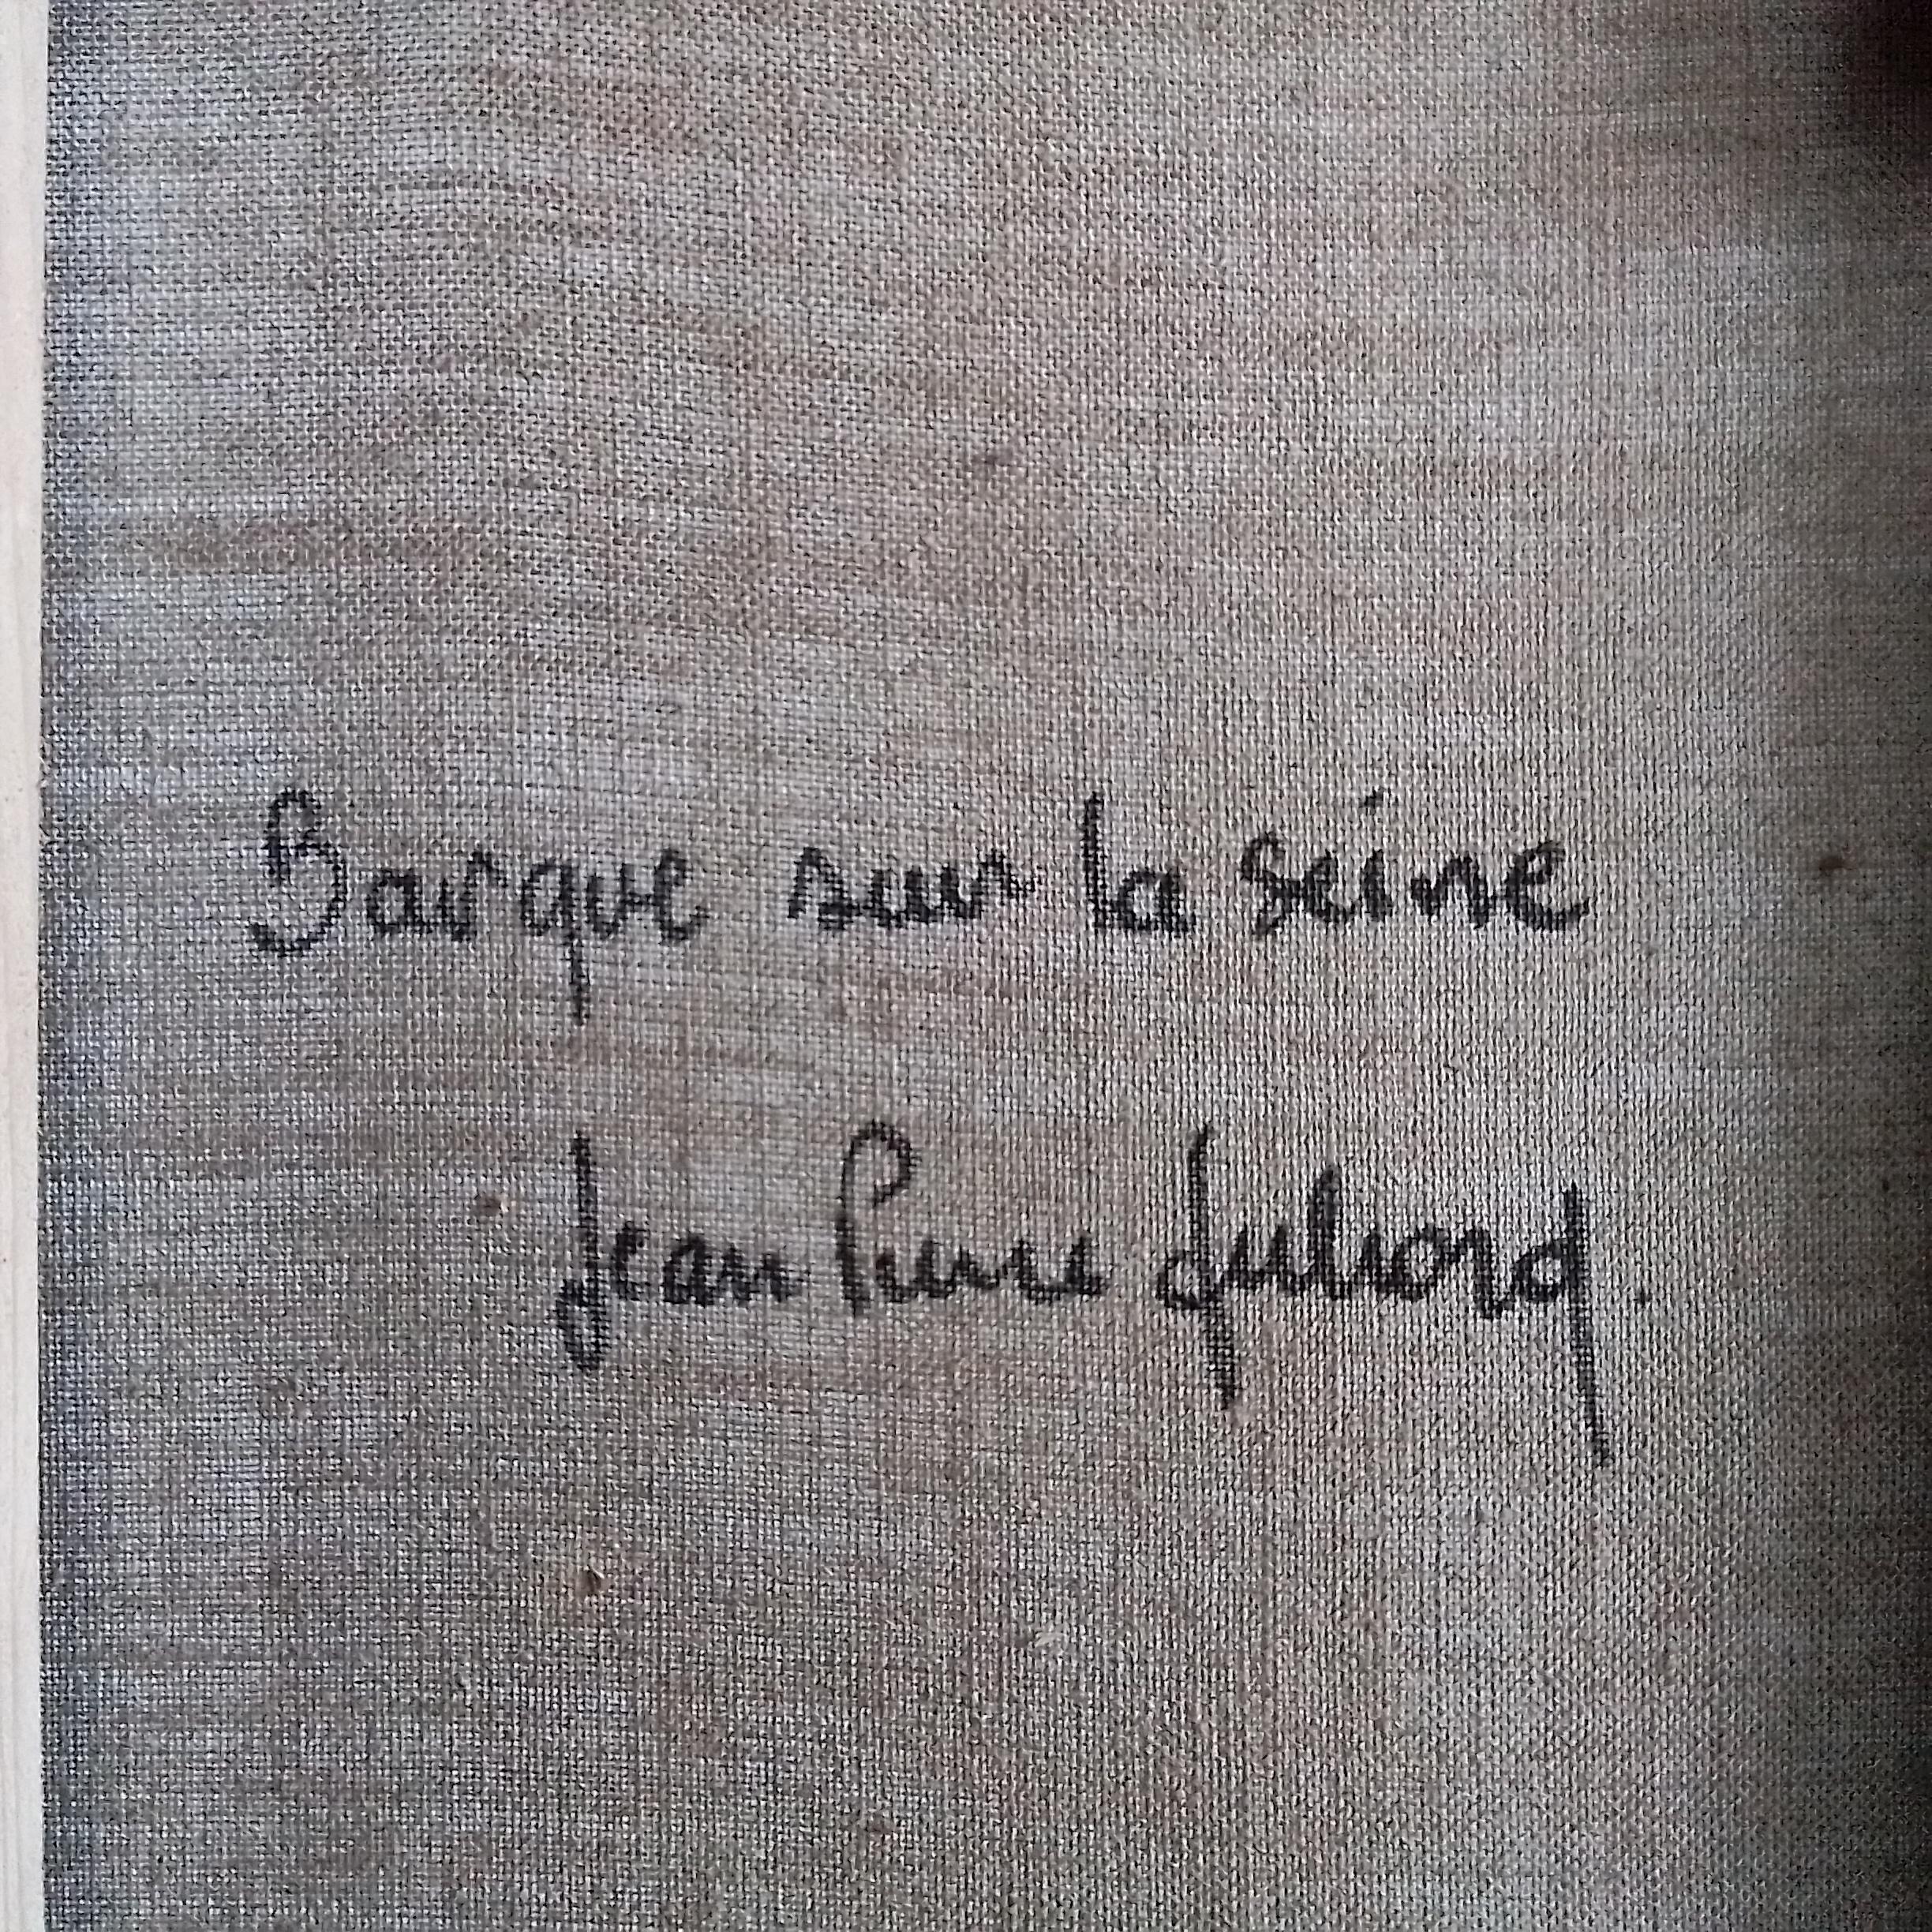 Barque sur la seine
Jean Pierre dubord.